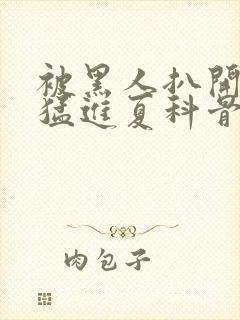 被黑人扒開
猛進夏科普
肉包子